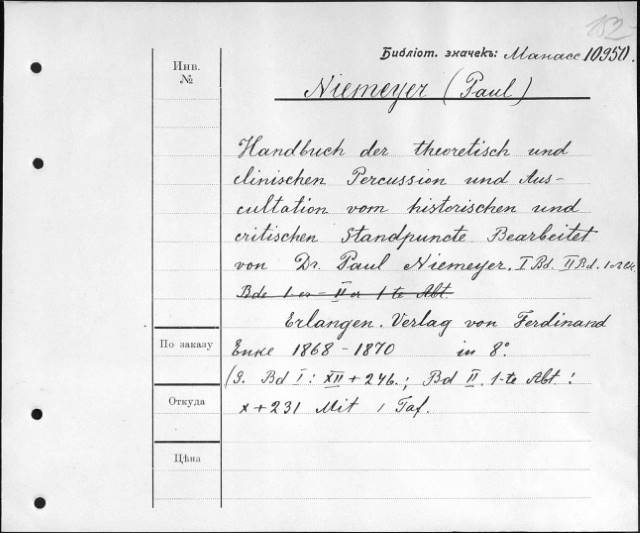 152
Библіот. значекъ: Манасс 10950.
Инв.
№
Niemeyer (Paul)
Handbuch der theoretisch und
clinischen Percussion und Aus-
cultation vom historischen und
critischen Standpuncte Bearbeitet
von Dr. Paul Niemeyer. I Bd. II Bd. 1
Bde 1 er - II er 1-te Abt.
Erlangen. Verlag von Ferdinand
По заказу
Enke 1868 - 1870 in 8°
(S. Bd I: XII + 246.; Bd II. 1-te Abt:
Откуда
x + 231 Mit 1 Taf.
Цѣна